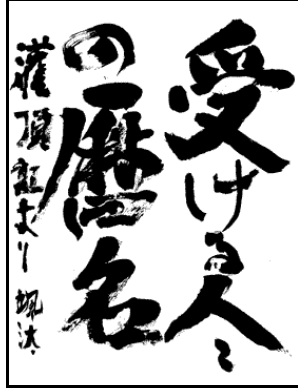 受ける人〻
の暦名
灌頂記より 颯汰